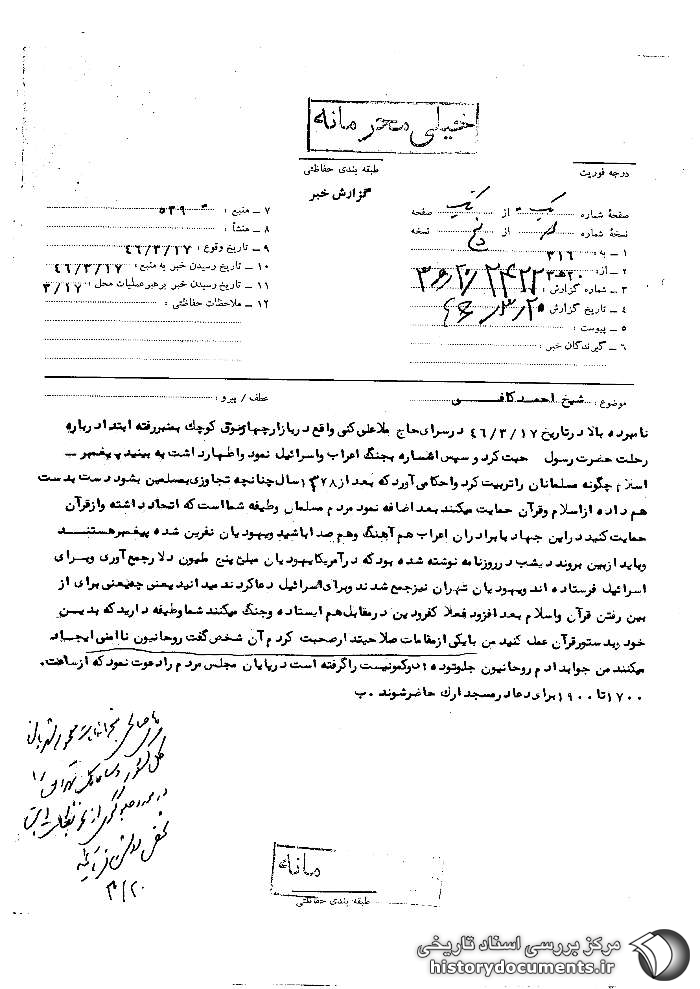 خیلی محرمانه
طبقه بندی حفاظتی
درجه فوریت
گزارش خبر
صفحهٔ شماره یک از یک صفحه
نسخهٔ شماره از نسخه
۱ – به : ۳۱۶
۲ – از : ۲۰ ه ۳
۳ – شماره گزارش :
۴ – تاریخ گزارش
۵ – پیوست :
۶ – گیرندگان خبر :
۷ – منبع : ۵۳۹۰
۸ – منشأ :
۹ – تاریخ وقوع : ۴۶/۳/۱۷
۱۰ – تاریخ رسیدن خبر به منبع : ۴۶/۳/۱۷
۱۱ – تاریخ رسیدن خبر برهبر عملیات محل : ۳/۱۷
۱۲ – ملاحظات حفاظتی :
موضوع : شیخ احمد کافی
عطف / پیرو :
نامبرده بالا در تاریخ ۴۶/۳/۱۷ در سرای حاج ملاعلی کنی واقع در بازار چهارسوق کوچک بمنبر رفته ابتدا درباره
رحلت حضرت رسول صحبت کرد و سپس اشاره بجنگ اعراب و اسرائیل نمود و اظهار داشت به بینید پیغمبر –
اسلام چگونه مسلمانان را تربیت کرد و احکامی آورد که بعد از ۱۳۷۸ سال چنانچه تجاوزی بمسلمین بشود دست بدست
هم داده از اسلام و قرآن حمایت میکنند بعد اضافه نمود مردم مسلمان وظیفه شما است که اتحاد داشته و از قرآن
حمایت کنید در این جهاد با برادران اعراب هم آهنگ و هم صدا باشید و یهودیان نفرین شده پیغمبر هستند
و باید از بین بروند دیشب در روزنامه نوشته شده بود که در آمریکا یهودیان مبلغ پنج ملیون دلار جمع آوری و برای
اسرائیل فرستاده اند و یهودیان تهران نیز جمع شدند و برای اسرائیل دعا کردند میدانید یعنی چه یعنی برای از
بین رفتن قرآن و اسلام بعد افزود فعلا کفر و دین در مقابل هم ایستاده و جنگ میکنند شما وظیفه دارید که بدین
خود و بدستور قرآن عمل کنید من با یکی از مقامات صلاحیتدار صحبت کردم آن شخص گفت روحانیون ناامنی ایجاد
میکنند من جواب دادم روحانیون جلو توده و کمونیست را گرفته است در پایان مجلس مردم را دعوت نمود که از ساعت.
۱۷۰۰ تا ۱۹۰۰ برای دعا در مسجد ارک حاضر شوند . پ
۳/۲۰
مانه
طبقه بندی حفاظتی
مرکز بررسی اسناد تاریخی
historydocuments.ir